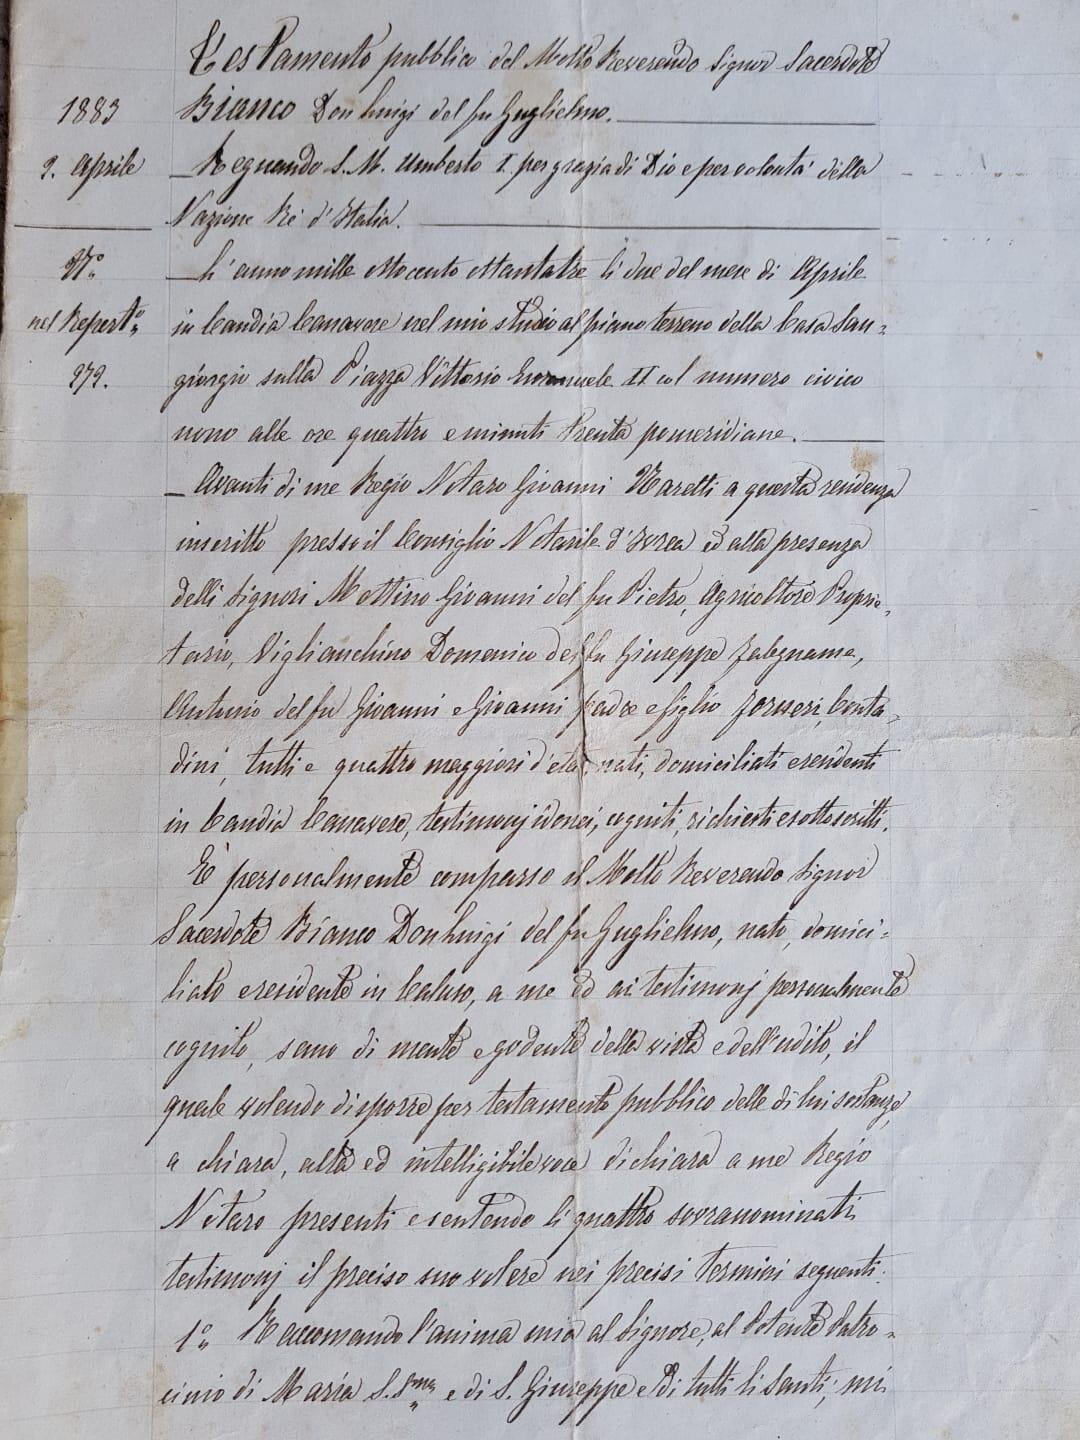 Testamento pubblico del Molto Reverendo Signor Sacerdote
1883 Bianco Don Luigi del fu Guglielmo.
2. Aprile Regnando S. M. Umberto I. per grazia di Dio e per volontà della
Nazione Re d'Italia.
N.° L'anno mille ottocento ottantatre li due del mese di Aprile
nel Repert.° in Candia Canavese nel mio studio al piano terreno della Casa San=
272. giorgio sulla Piazza Vittorio Emanuele II col numero civico
nono alle ore quattro e minuti trenta pomeridiane.
Avanti di me Regio Notaro Giovanni Naretti a questa residenza
inscritto presso il Consiglio Notarile d'Ivrea ed alla presenza
delli Signori Mottino Giovanni del fu Pietro, Agricoltore Proprie=
tario, Viglianchino Domenico del fu Giuseppe falegname,
Antonio del fu Giovanni e Giovanni padre e figlio Forneri, Conta=
dini, tutti e quattro maggiori d'età, nati, domiciliati e residenti
in Candia Canavese, testimonj idonei, cogniti, richiesti e sottoscritti.
È personalmente comparso il Molto Reverendo Signor
Sacerdote Bianco Don Luigi del fu Guglielmo, nato, domici=
liato e residente in Caluso, a me ed ai testimonj personalmente
cognito, sano di mente e godente della vista e dell'udito, il
quale volendo disporre per testamento pubblico delle di lui sostanze,
a chiara, alta ed intelligibile voce dichiara a me Regio
Notaro presenti e sentendo li quattro sovranominati
testimonj il preciso suo volere nei precisi termini seguenti:
1° Raccomando l'anima mia al Signore, al Potente Patro=
cinio di Maria S.Sma e di S. Giuseppe e di tutti li Santi; mi